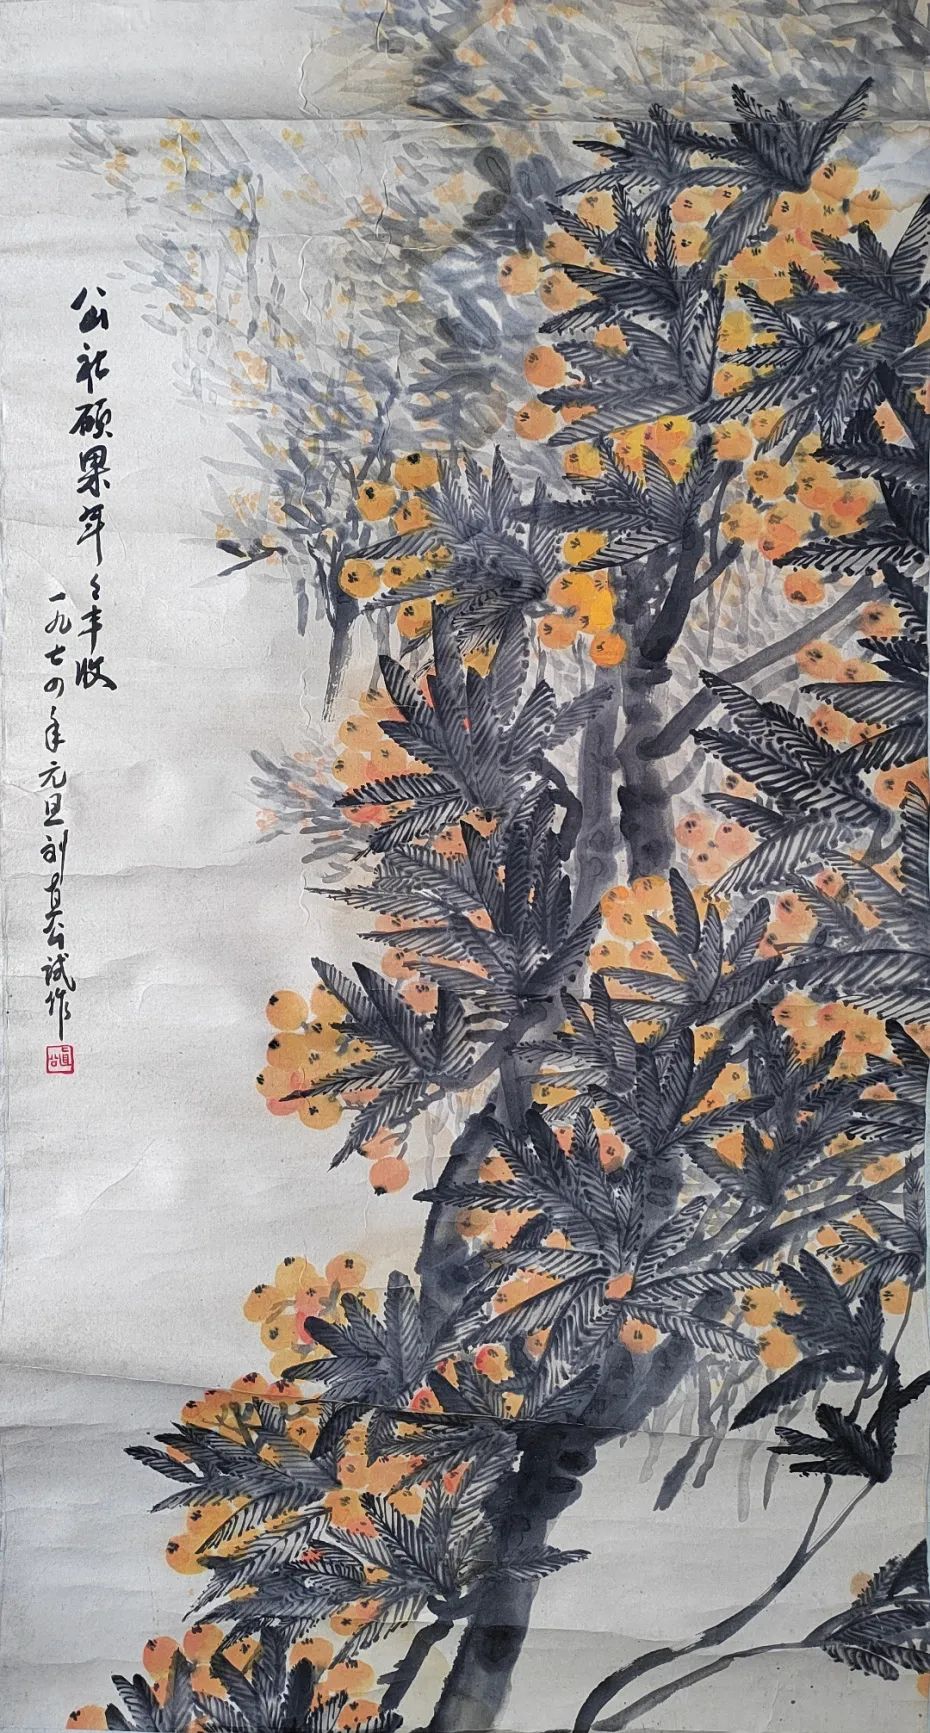 公社硕果年々丰收
一九七四年元旦刘 试作